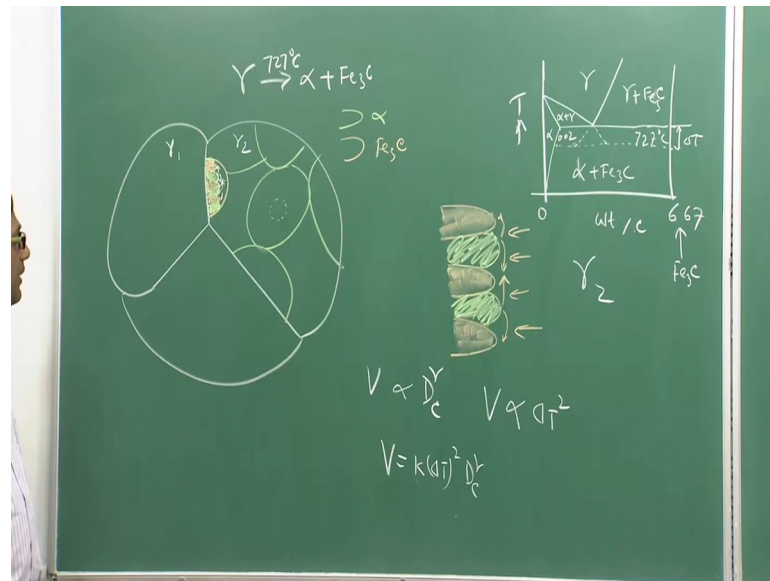 γ 727°C → α + Fe₃C
γ₁
γ₂
α
Fe₃C
T
γ
γ+Fe₃C
α+γ
α
0.02
727°C
ΔT
α+Fe₃C
0
wt%C
6.67
Fe₃C
γ₂
V ∝ D_C^γ
V ∝ ΔT²
V = K(ΔT)² D_C^γ